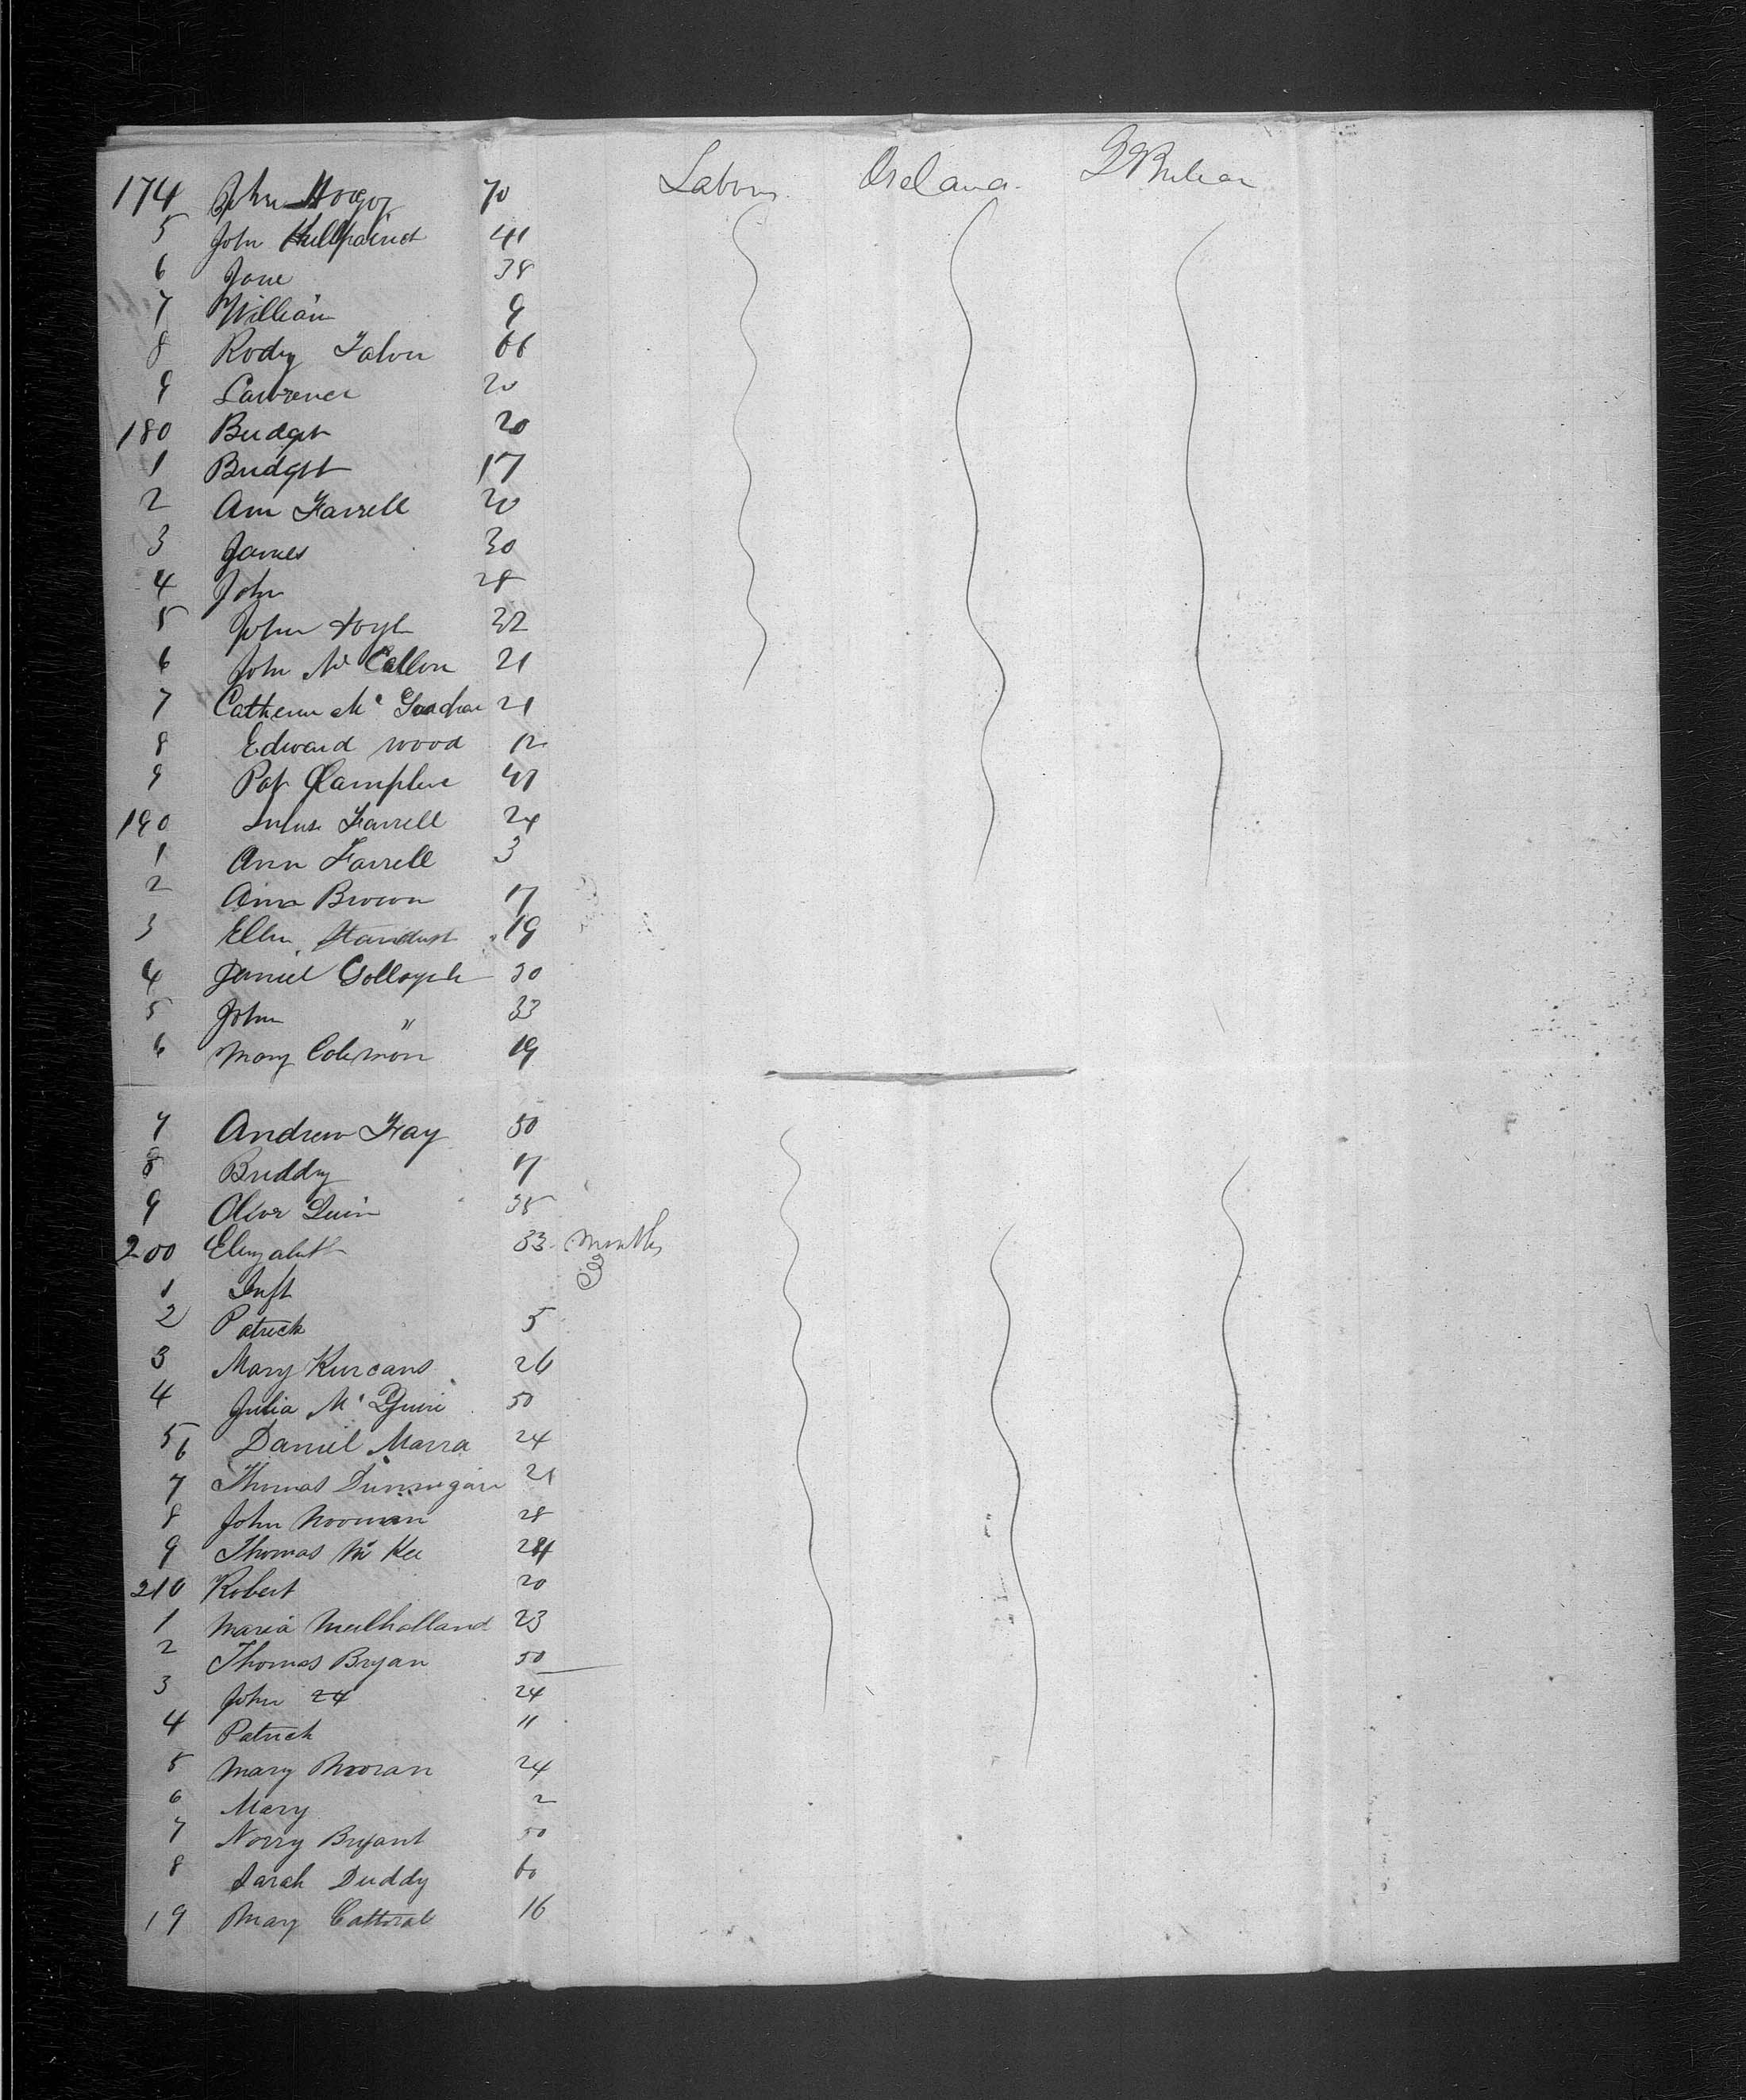 174 John Hogoz 70 Labour Ireland G Britian
5 John Killpatrick 41
6 Jane 38
7 William 9
8 Rody Falon 66
9 Lawrence 20
180 Bridget 20
1 Bridget 17
2 Ann Farrell 20
3 James 30
4 John 28
5 John 32
6 John Mc Callon 21
7 Catherin Mc 21
8 Edward wood 12
9 Pat 41
190 Farrell 24
1 Ann Farrell 3
2 Ann Brown 17
3 Ellen 19
4 Daniel 30
5 John " 33
6 Mary Colemon 19
7 Andrew Fay 50
8 Briddy 17
9 Oliver Quin 35
200 Elizabeth 33 months
1 Inft 3
2 Patrick 5
3 Mary 26
4 Julia Mc Guire 50
5 6 Daniel Marra 24
7 Thomas Dunnigan 21
8 John Noonan 28
9 Thomas Mc Kee 24
210 Robert 20
1 Maria Mulholland 23
2 Thomas Bryan 50
3 John 24 24
4 Patrick 11
5 Mary Moran 24
6 Mary 2
7 Norry Bryant 50
8 Sarah Duddy 60
19 Mary Cattoral 16